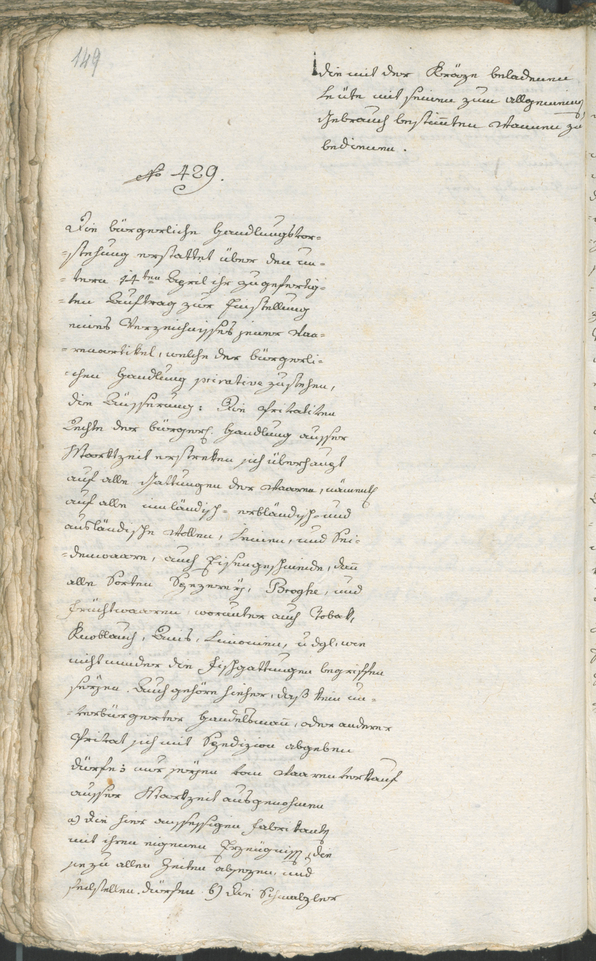 149
die mit der Kräze beladenen
Leüte mit seinen zum allgemeinen
Gebrauch bestim̄ten Wannen zu
bedienen.
No 429.
Die bürgerliche Handlungsvor-
-stehung erstattet über den un-
-term 14ten April ihr zugefertig-
-ten Auftrag zur Einstellung
eines Verzeichnisses jener Waa-
-renartikel, welche der bürgerli-
-chen Handlung privative zustehen,
die Äusserung: Die Privativen
Rechte der bürgerl. Handlung ausser
Marktzeit erstreken sich überhaupt
auf alle Gattungen der Waaren, näment.
auf alle inländisch- erbländisch- und
ausländische Wollen, Leinen, und Sei-
-denwaare, auch Eisengeschmeide, dan̄
alle Sorten Spezerey, Broghe, und
Früchtwaaren, worunter auch Tobak,
Knoblauch, Anis, Limonien, u. dgl. wie
nicht minder die Fischgattungen begriffen
seyen. Auch gehöre hieher, daß kein un-
-verbürgerter Handelsman̄, oder anderer
Privat sich mit Spedizion abgeben
dürfe; nur seyen vom Waaren Verkauf
ausser Marktzeit ausgenohmen
a) die hier ansessigen Fabrikants
mit ihren eigenen Erzeügniss, die
sie zu allen Zeiten absezen, und
feilstellen dürfen. b) Die Schmalzler